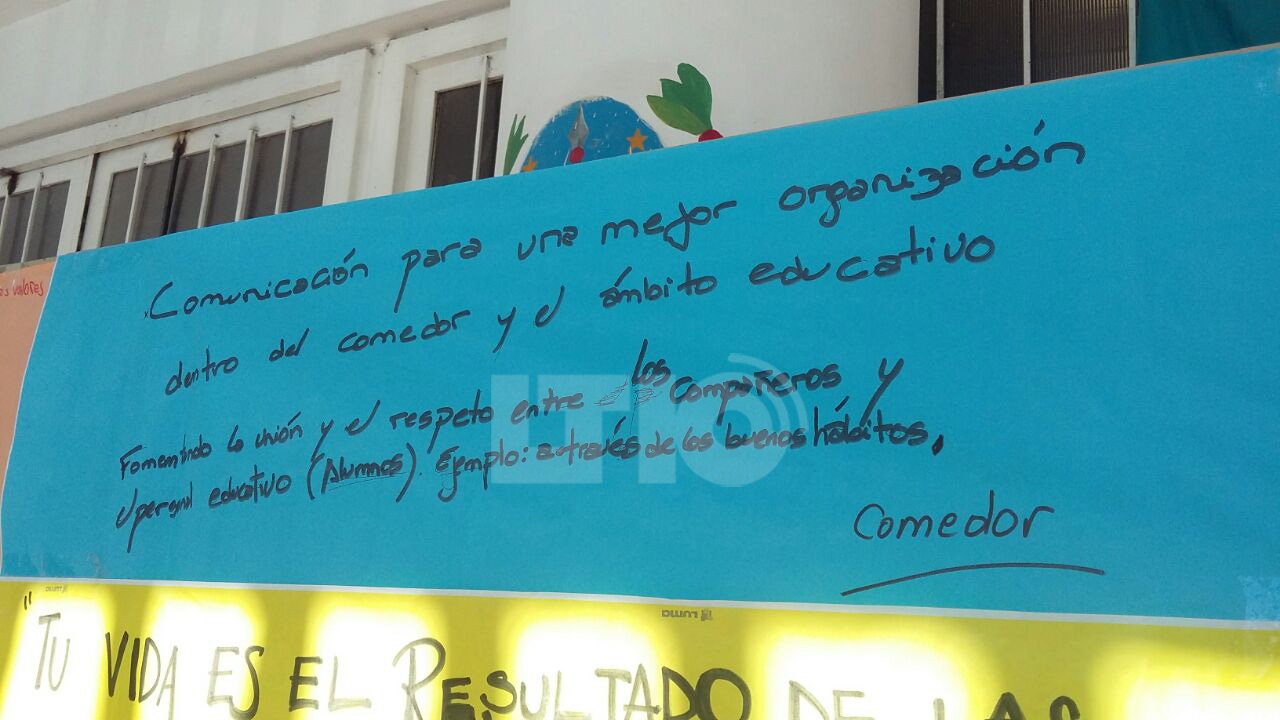 os valores
Comunicación para una mejor organización
dentro del comedor y el ámbito educativo
Fomentando la unión y el respeto entre los compañeros y
el personal educativo (Alumnos). Ejemplo: a través de los buenos hábitos.
Comedor
LT10
LUMA
"TU VIDA ES EL RESULTADO DE LAS